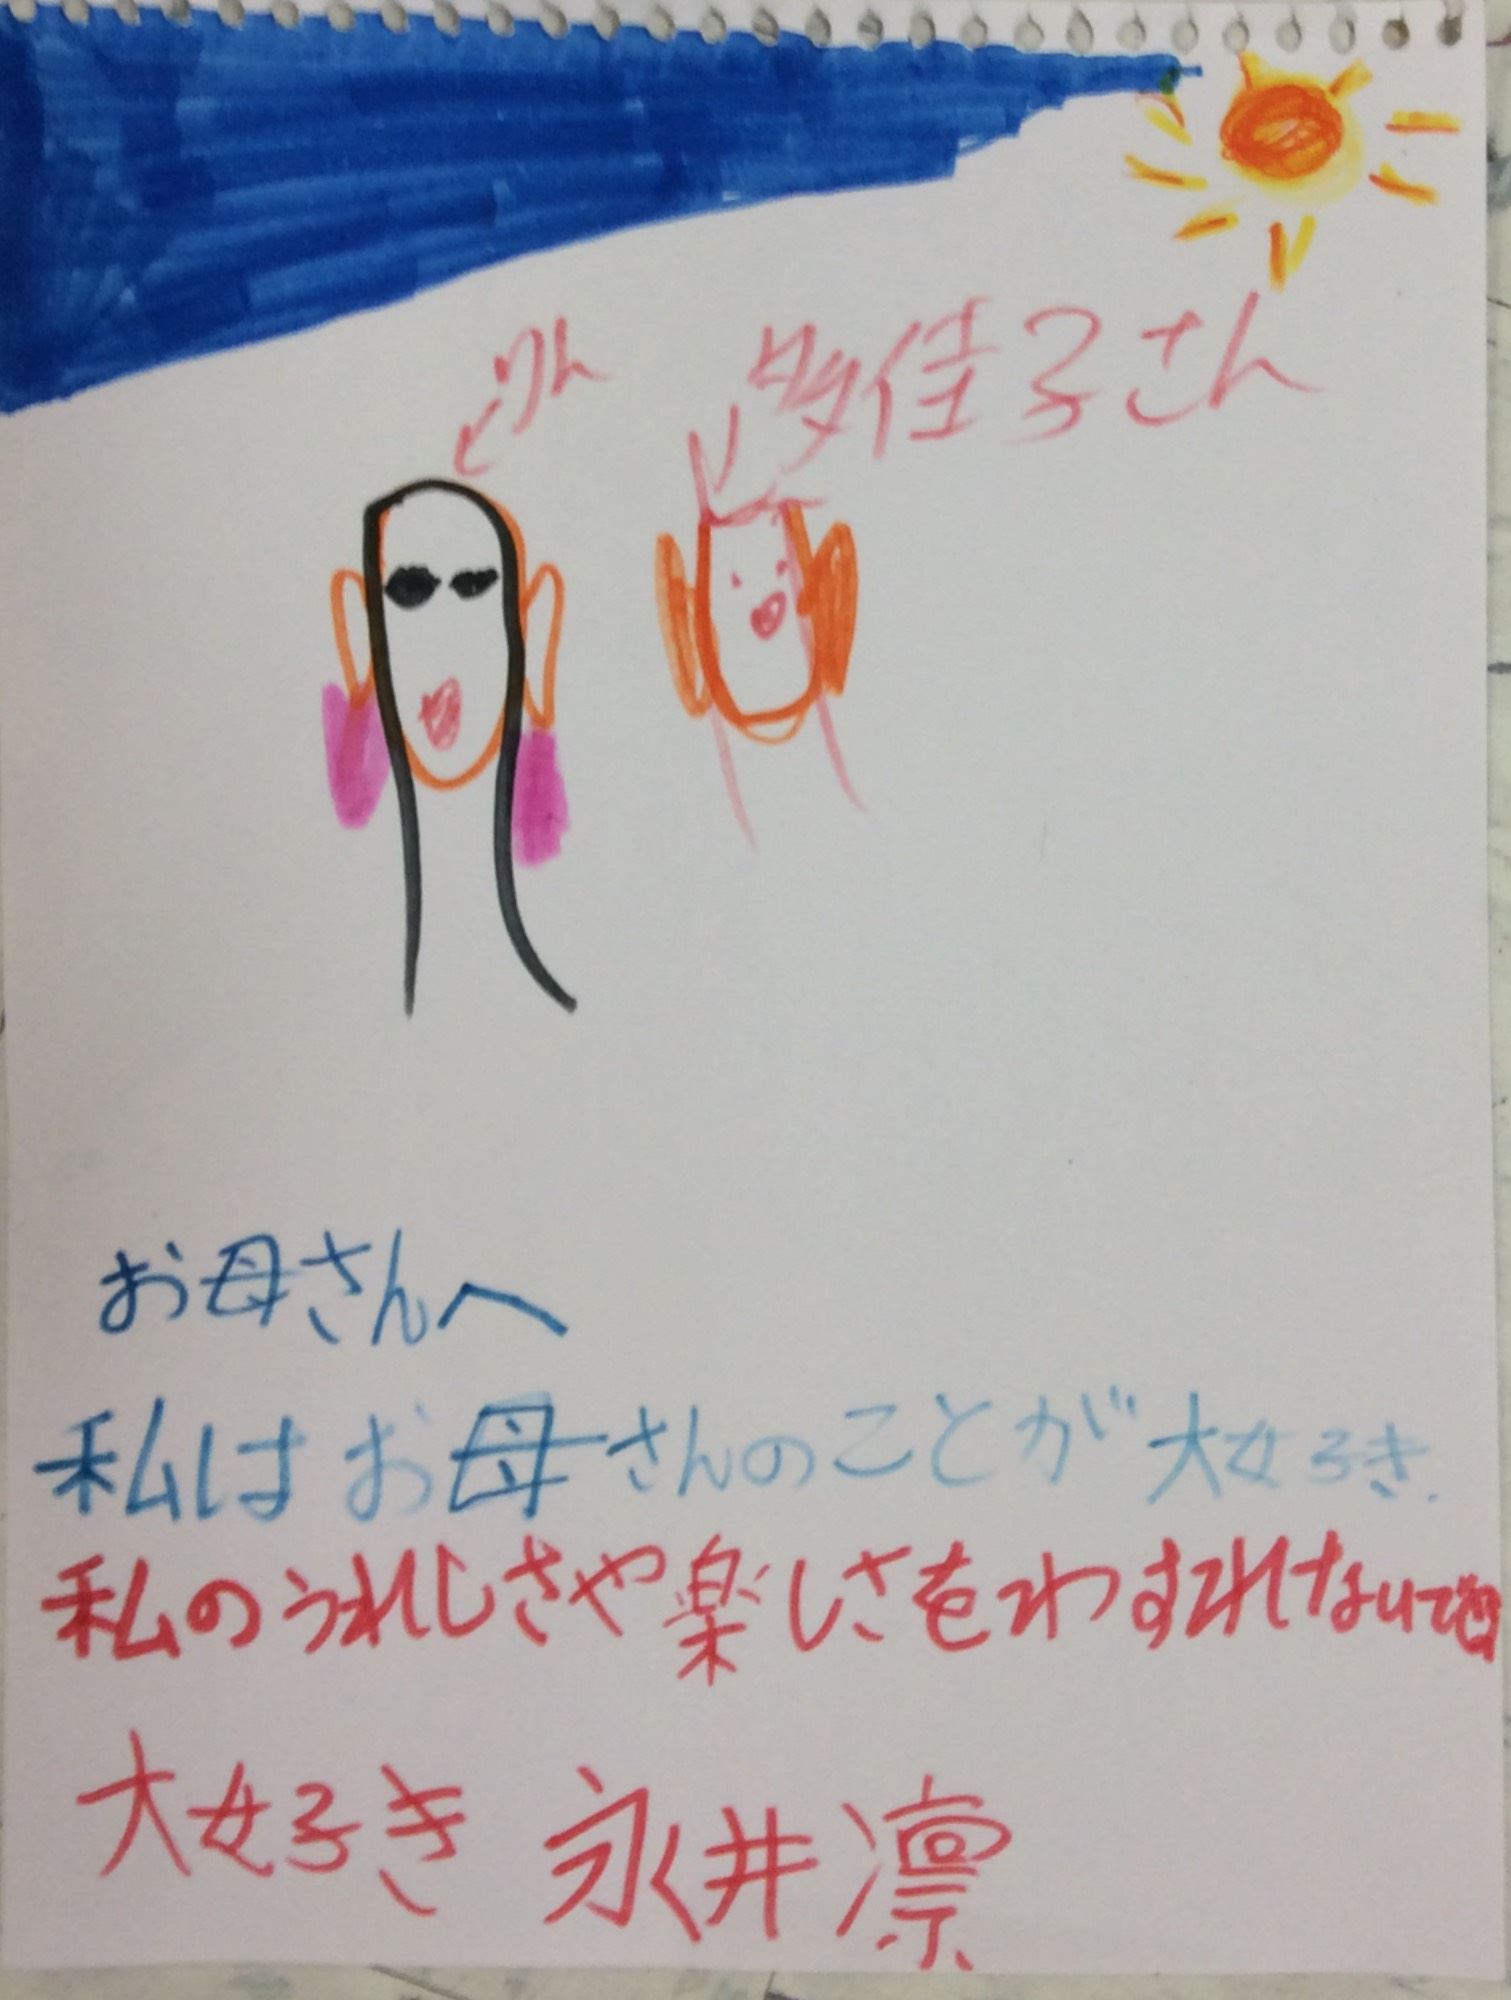 りん
多佳子さん
お母さんへ
私はお母さんのことが大好き.
私のうれしさや楽しさをわすれないでね
大好き 永井凛